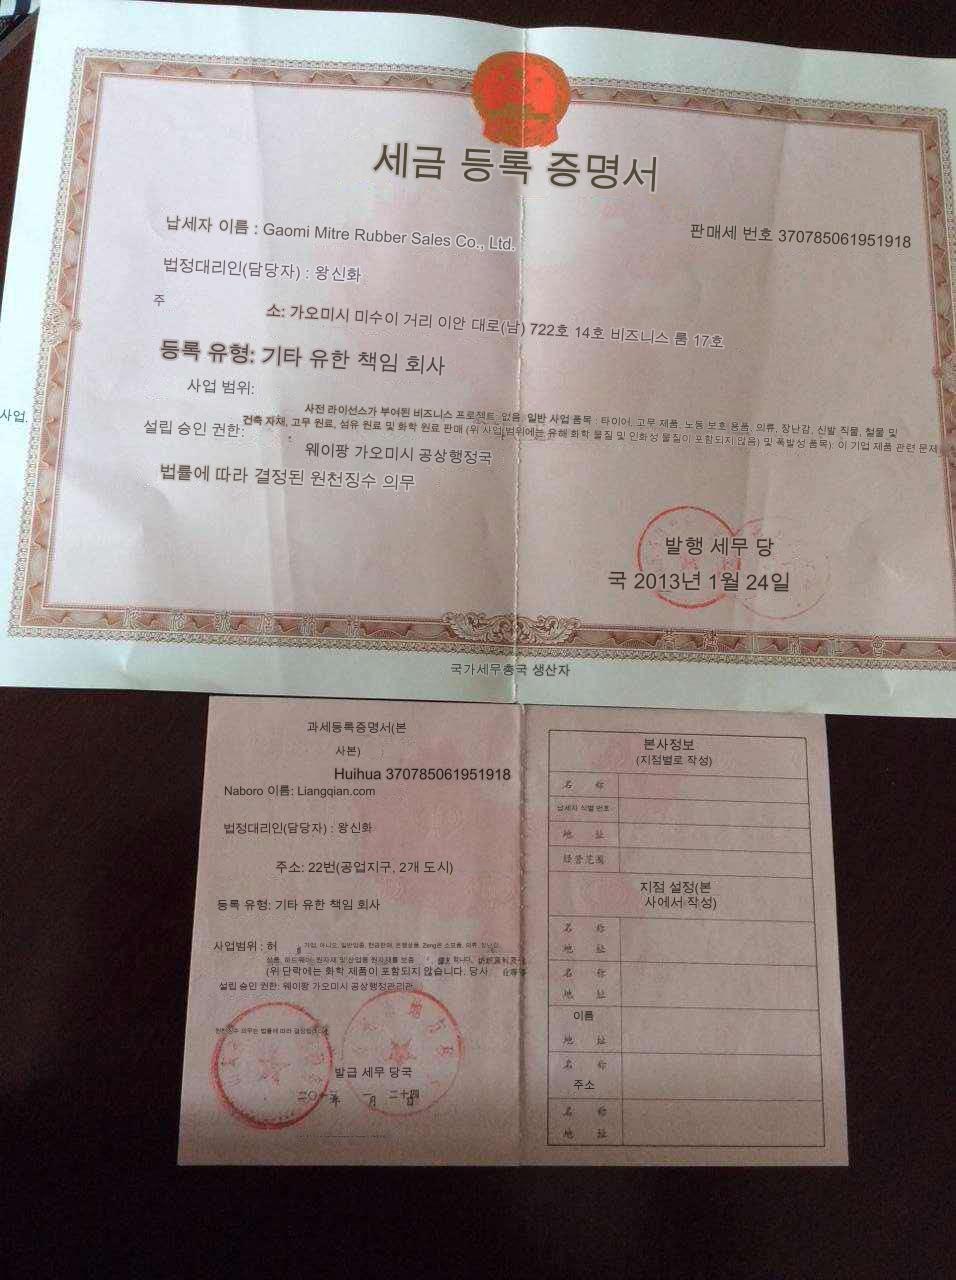 세금 등록 증명서
납세자 이름 : Gaomi Mitre Rubber Sales Co., Ltd.
판매세 번호 370785061951918
법정대리인(담당자) : 왕신화
주
소: 가오미시 미수이 거리 이안 대로(남) 722호 14호 비즈니스 룸 17호
등록 유형: 기타 유한 책임 회사
사업 범위:
사업.
사전 라이선스가 부여된 비즈니스 프로젝트: 없음. 일반 사업 품목 : 타이어, 고무 제품, 노동 보호 용품, 의류, 장난감, 신발 직물, 철물 및
건축 자재, 고무 원료, 섬유 원료 및 화학 원료 판매 (위 사업 범위에는 유해 화학 물질 및 인화성 물질이 포함되지 않음) 및 폭발성 품목): 이 기업 제품 관련 문제
설립 승인 권한:
웨이팡 가오미시 공상행정국
법률에 따라 결정된 원천징수 의무
발행 세무 당
국 2013년 1월 24일
국가세무총국 생산자
과세등록증명서(본
사본)
Huihua 370785061951918
Naboro 이름: Liangqian.com
법정대리인(담당자) : 왕신화
주소: 22번(공업지구, 2개 도시)
등록 유형: 기타 유한 책임 회사
사업범위 : 허
(위 단락에는 화학 제품이 포함되지 않습니다. 당사
설립 승인 권한: 웨이팡 가오미시 공상행정관리관
원천징수 의무는 법률에 따라 결정됩니다
발급 세무 당국
二〇一三年 一月 二十四日
본사정보
(지점별로 작성)
名 称
납세자 식별 번호
地 址
经营范围
지점 설정(본
사에서 작성)
名 称
地 址
名 称
地 址
이름
地 址
名 称
주소
名 称
地 址